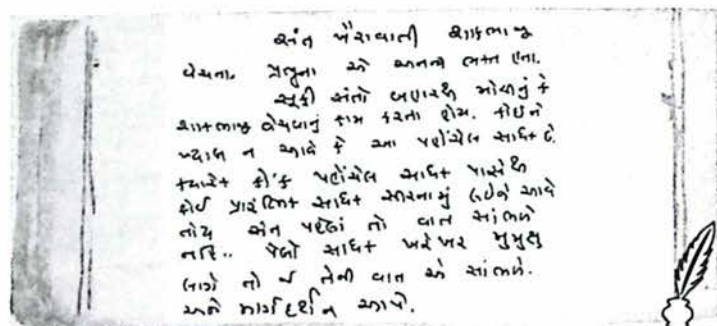 સંત ખૈરાવાતી શાકભાજી
વેચતા. પ્રભુના એ અનન્ય ભક્ત હતા.
સૂફી સંતો બહારથી મોચીનું કે
શાકભાજી વેચવાનું કામ કરતા હોય. કોઈને
ખ્યાલ ન આવે કે આ પહોંચેલ સાધક છે.
ક્યારેક કો'ક પહોંચેલ સાધક પાસેથી
કોઈ પ્રારંભિક સાધક સરનામું લઈને આવે
તોય સંત પહેલાં તો વાત સાંભળે
નહિ.. પેલો સાધક ખરેખર મુમુક્ષુ
લાગે તો જ તેની વાત એ સાંભળે.
અને માર્ગદર્શન આપે.